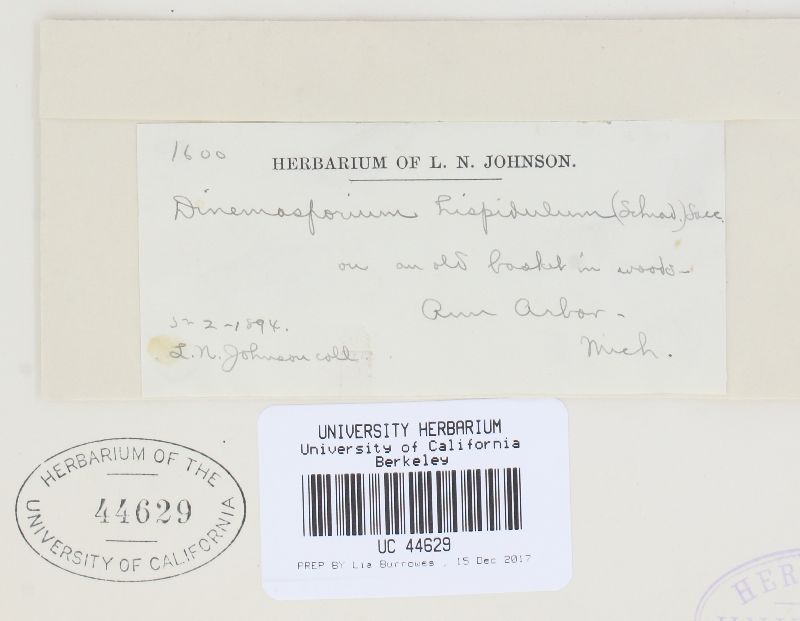 1600
HERBARIUM OF L. N. JOHNSON.
Dinemasporium hispidulum (Schrad.) Sacc.
on an old basket in woods-
Ann Arbor-
5-2-1894.
L. N. Johnson coll.
Mich.
HERBARIUM OF THE
44629
UNIVERSITY OF CALIFORNIA
UNIVERSITY HERBARIUM
University of California
Berkeley
UC 44629
PREP BY Lia Burrowes , 15 Dec 2017